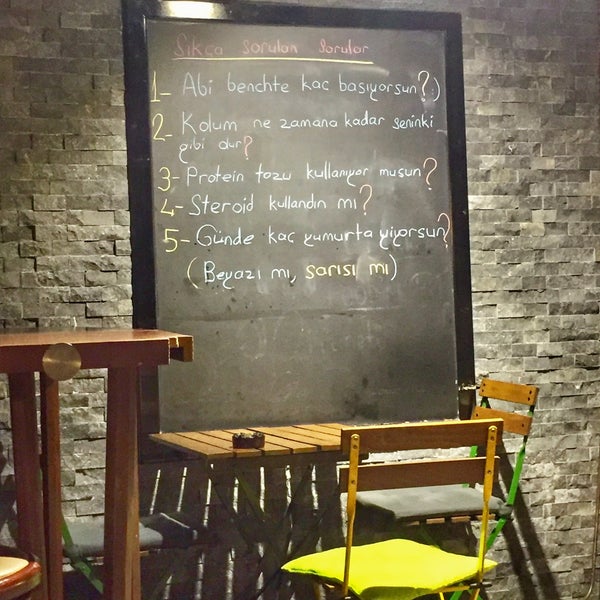 Sıkça sorulan sorular
1- Abi benchte kaç basıyorsun? :)
2- Kolum ne zamana kadar seninki
gibi olur?
3- Protein tozu kullanıyor musun?
4- Steroid kullandın mı?
5- Günde kaç yumurta yiyorsun?
(Beyazı mı, sarısı mı)